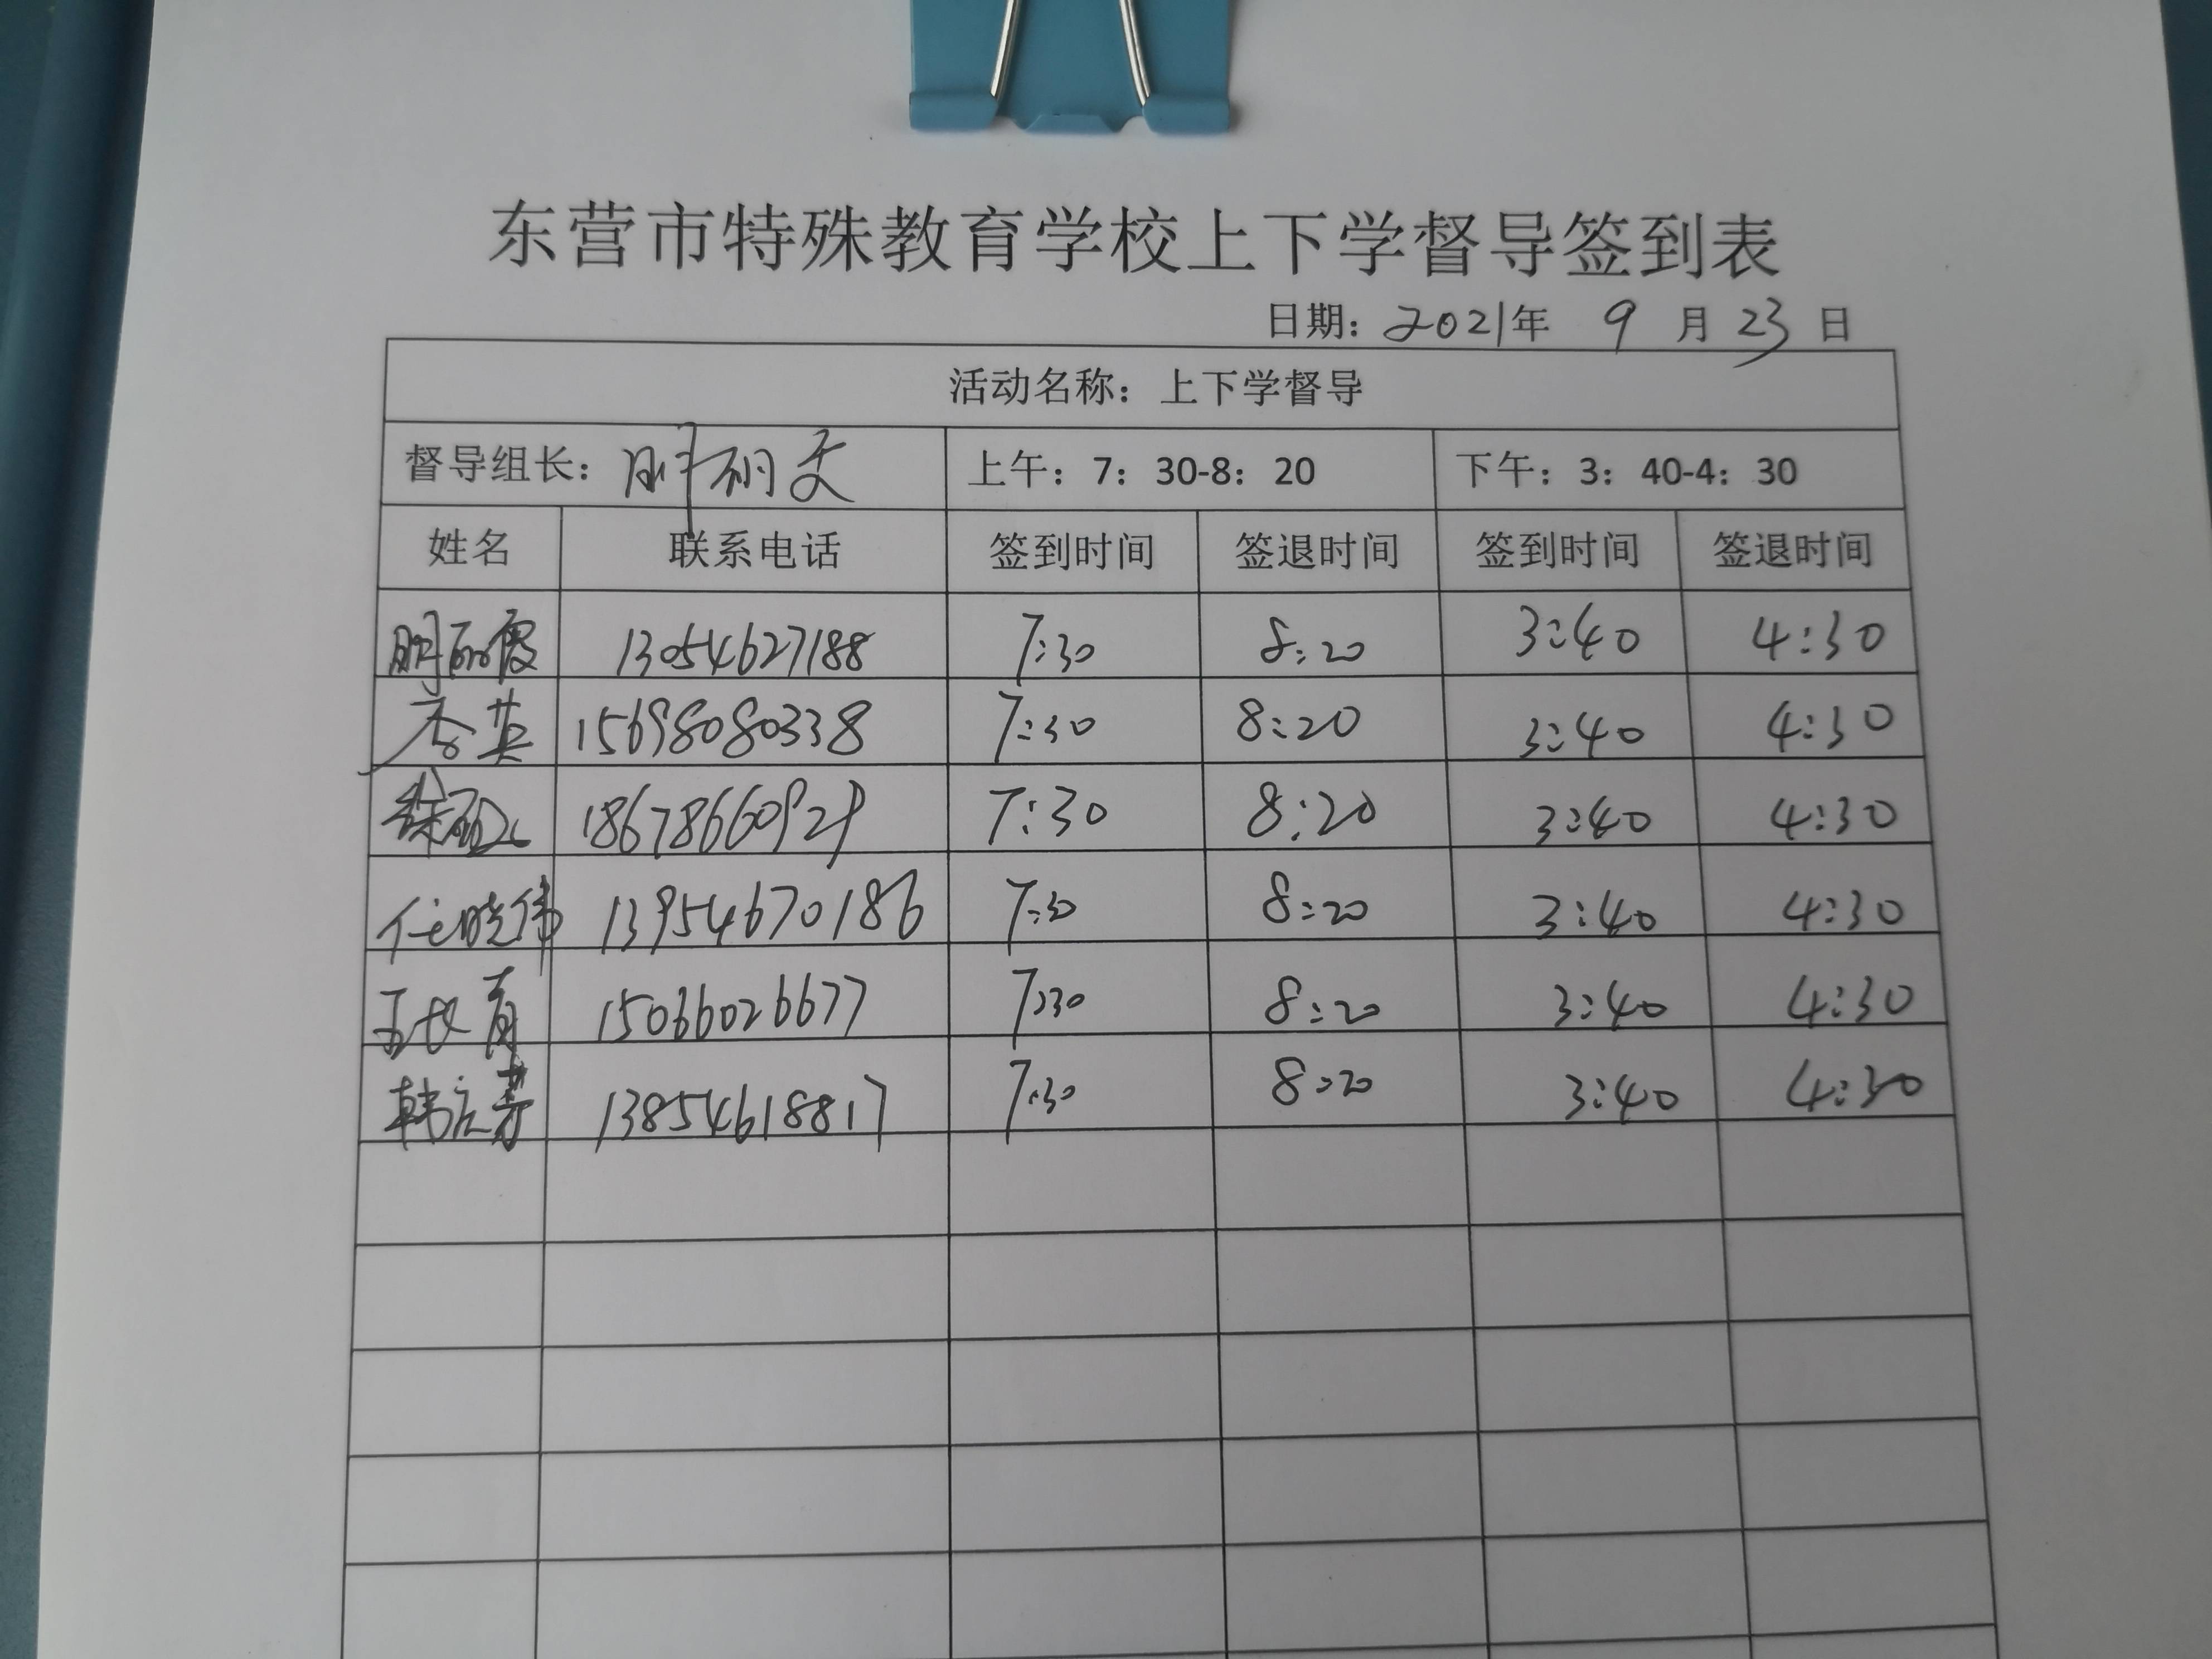 东营市特殊教育学校上下学督导签到表
日期：2021年 9 月 23 日
活动名称：上下学督导
督导组长： 上午：7：30-8：20 下午：3：40-4：30
姓名 联系电话 签到时间 签退时间 签到时间 签退时间
13054627188 7:30 8:20 3:40 4:30
李英 15698080338 7:30 8:20 3:40 4:30
18678660929 7:30 8:20 3:40 4:30
任晓伟 13954670186 7:30 8:20 3:40 4:30
15066026677 7:30 8:20 3:40 4:30
韩立芳 13854618817 7:30 8:20 3:40 4:30